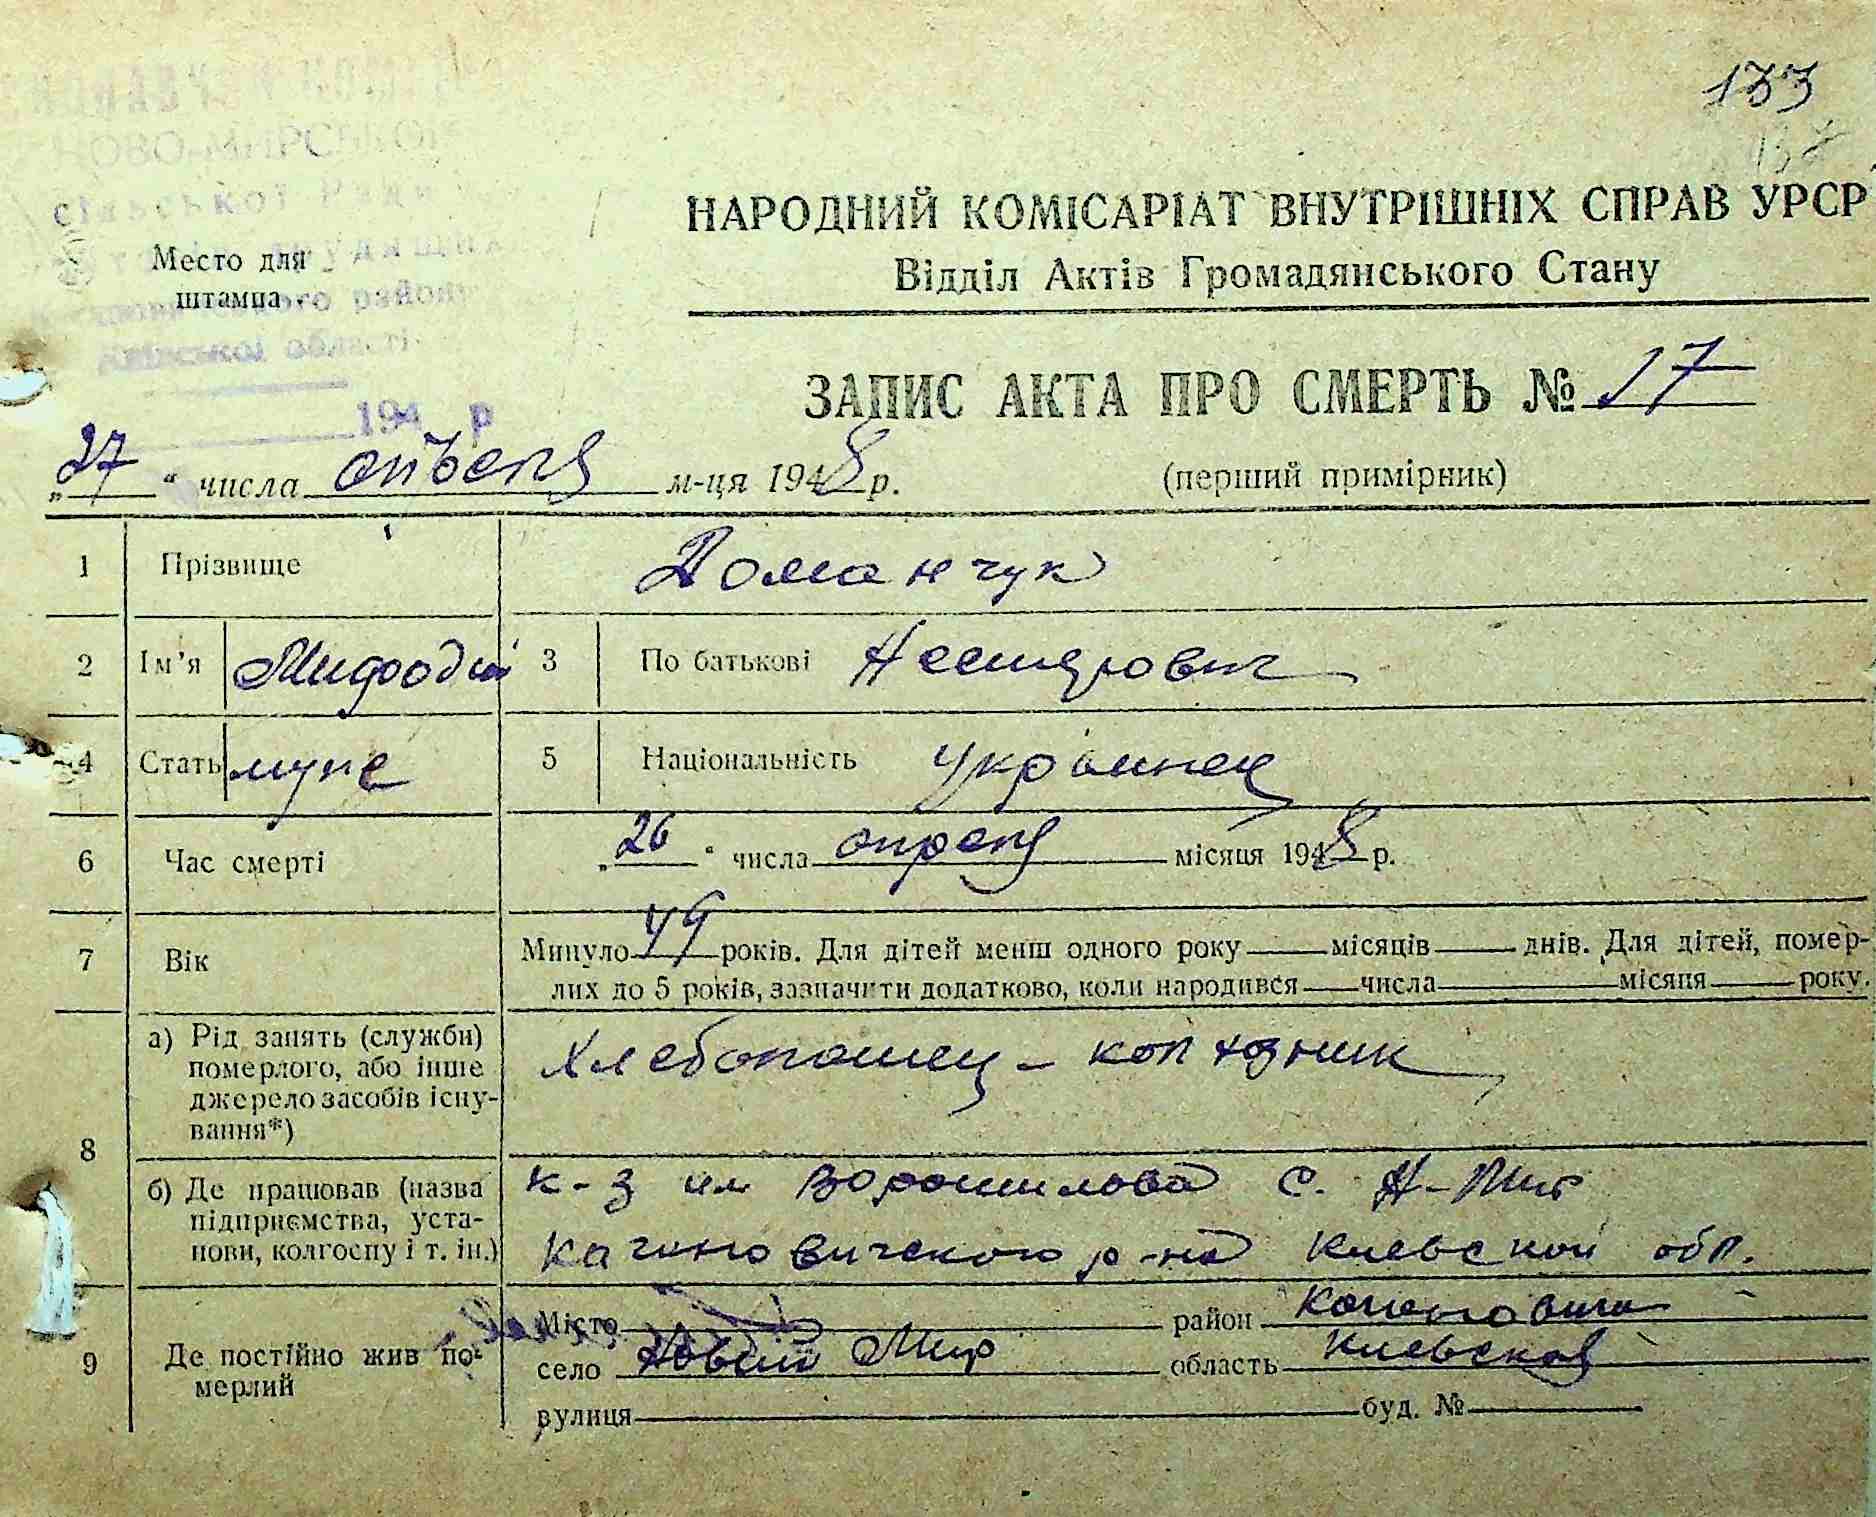 133
137
НОВО-МИРСЬКОЇ
сільської Ради
трудящих
району
Київської області
194 р
Место для
штампа
НАРОДНИЙ КОМІСАРІАТ ВНУТРІШНІХ СПРАВ УРСР
Відділ Актів Громадянського Стану
ЗАПИС АКТА ПРО СМЕРТЬ № 17
„27“ числа апреля м-ця 1948 р.
(перший примірник)
1 Прізвище Доманчук
2 Ім'я Мифодий 3 По батькові Несторович
4 Стать муж 5 Національність украинец
6 Час смерті „26“ числа апреля місяця 1948 р.
7 Вік Минуло 49 років. Для дітей менш одного року місяців днів. Для дітей, помер-
лих до 5 років, зазначити додатково, коли народився числа місяця року.
8 а) Рід занять (служби)
померлого, або інше
джерело засобів існу-
вання*)
Хлебопашец - колхозник
б) Де працював (назва
підприємства, уста-
нови, колгоспу і т. ін.)
к-з им Ворошилова с. Н-Мир
Кагановичского р-на Киевской обл.
9 Де постійно жив по-
мерлий
Місто район Каганович
село Новый Мир область Киевская
вулиця буд. №